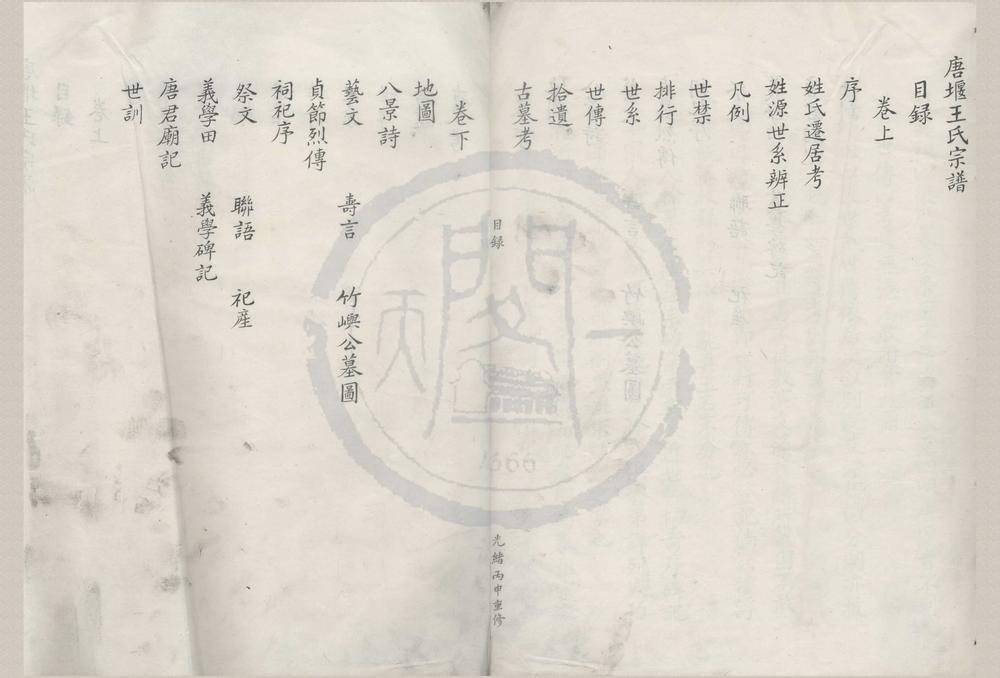 唐堰王氏宗譜
目録
卷上
序
姓氏遷居考
姓源世系辨正
凡例
世禁
排行
世系
世傳
拾遺
古墓考
目録
光緒丙申重修
卷下
地圖
八景詩
藝文 壽言 竹嶼公墓圖
貞節烈傳
祠祀序
祭文 聯語 祀産
義學田 義學碑記
唐君廟記
世訓
天一閣
1566